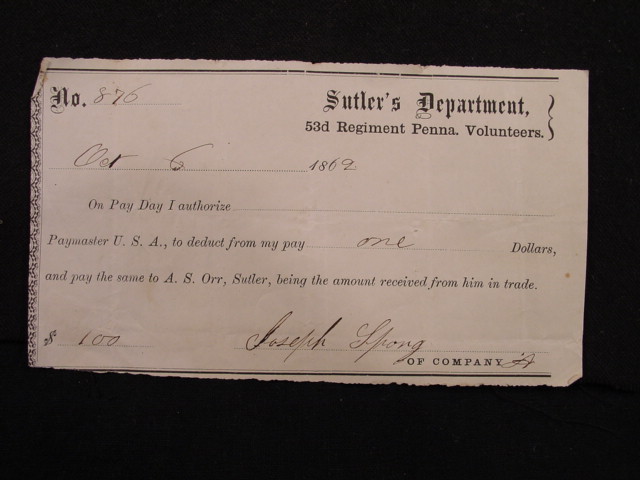 No. 876
Sutler's Department,
53d Regiment Penna. Volunteers.
Oct 6 1862
On Pay Day I authorize
Paymaster U. S. A., to deduct from my pay one Dollars,
and pay the same to A. S. Orr, Sutler, being the amount received from him in trade.
$ 100
Joseph Spong
OF COMPANY